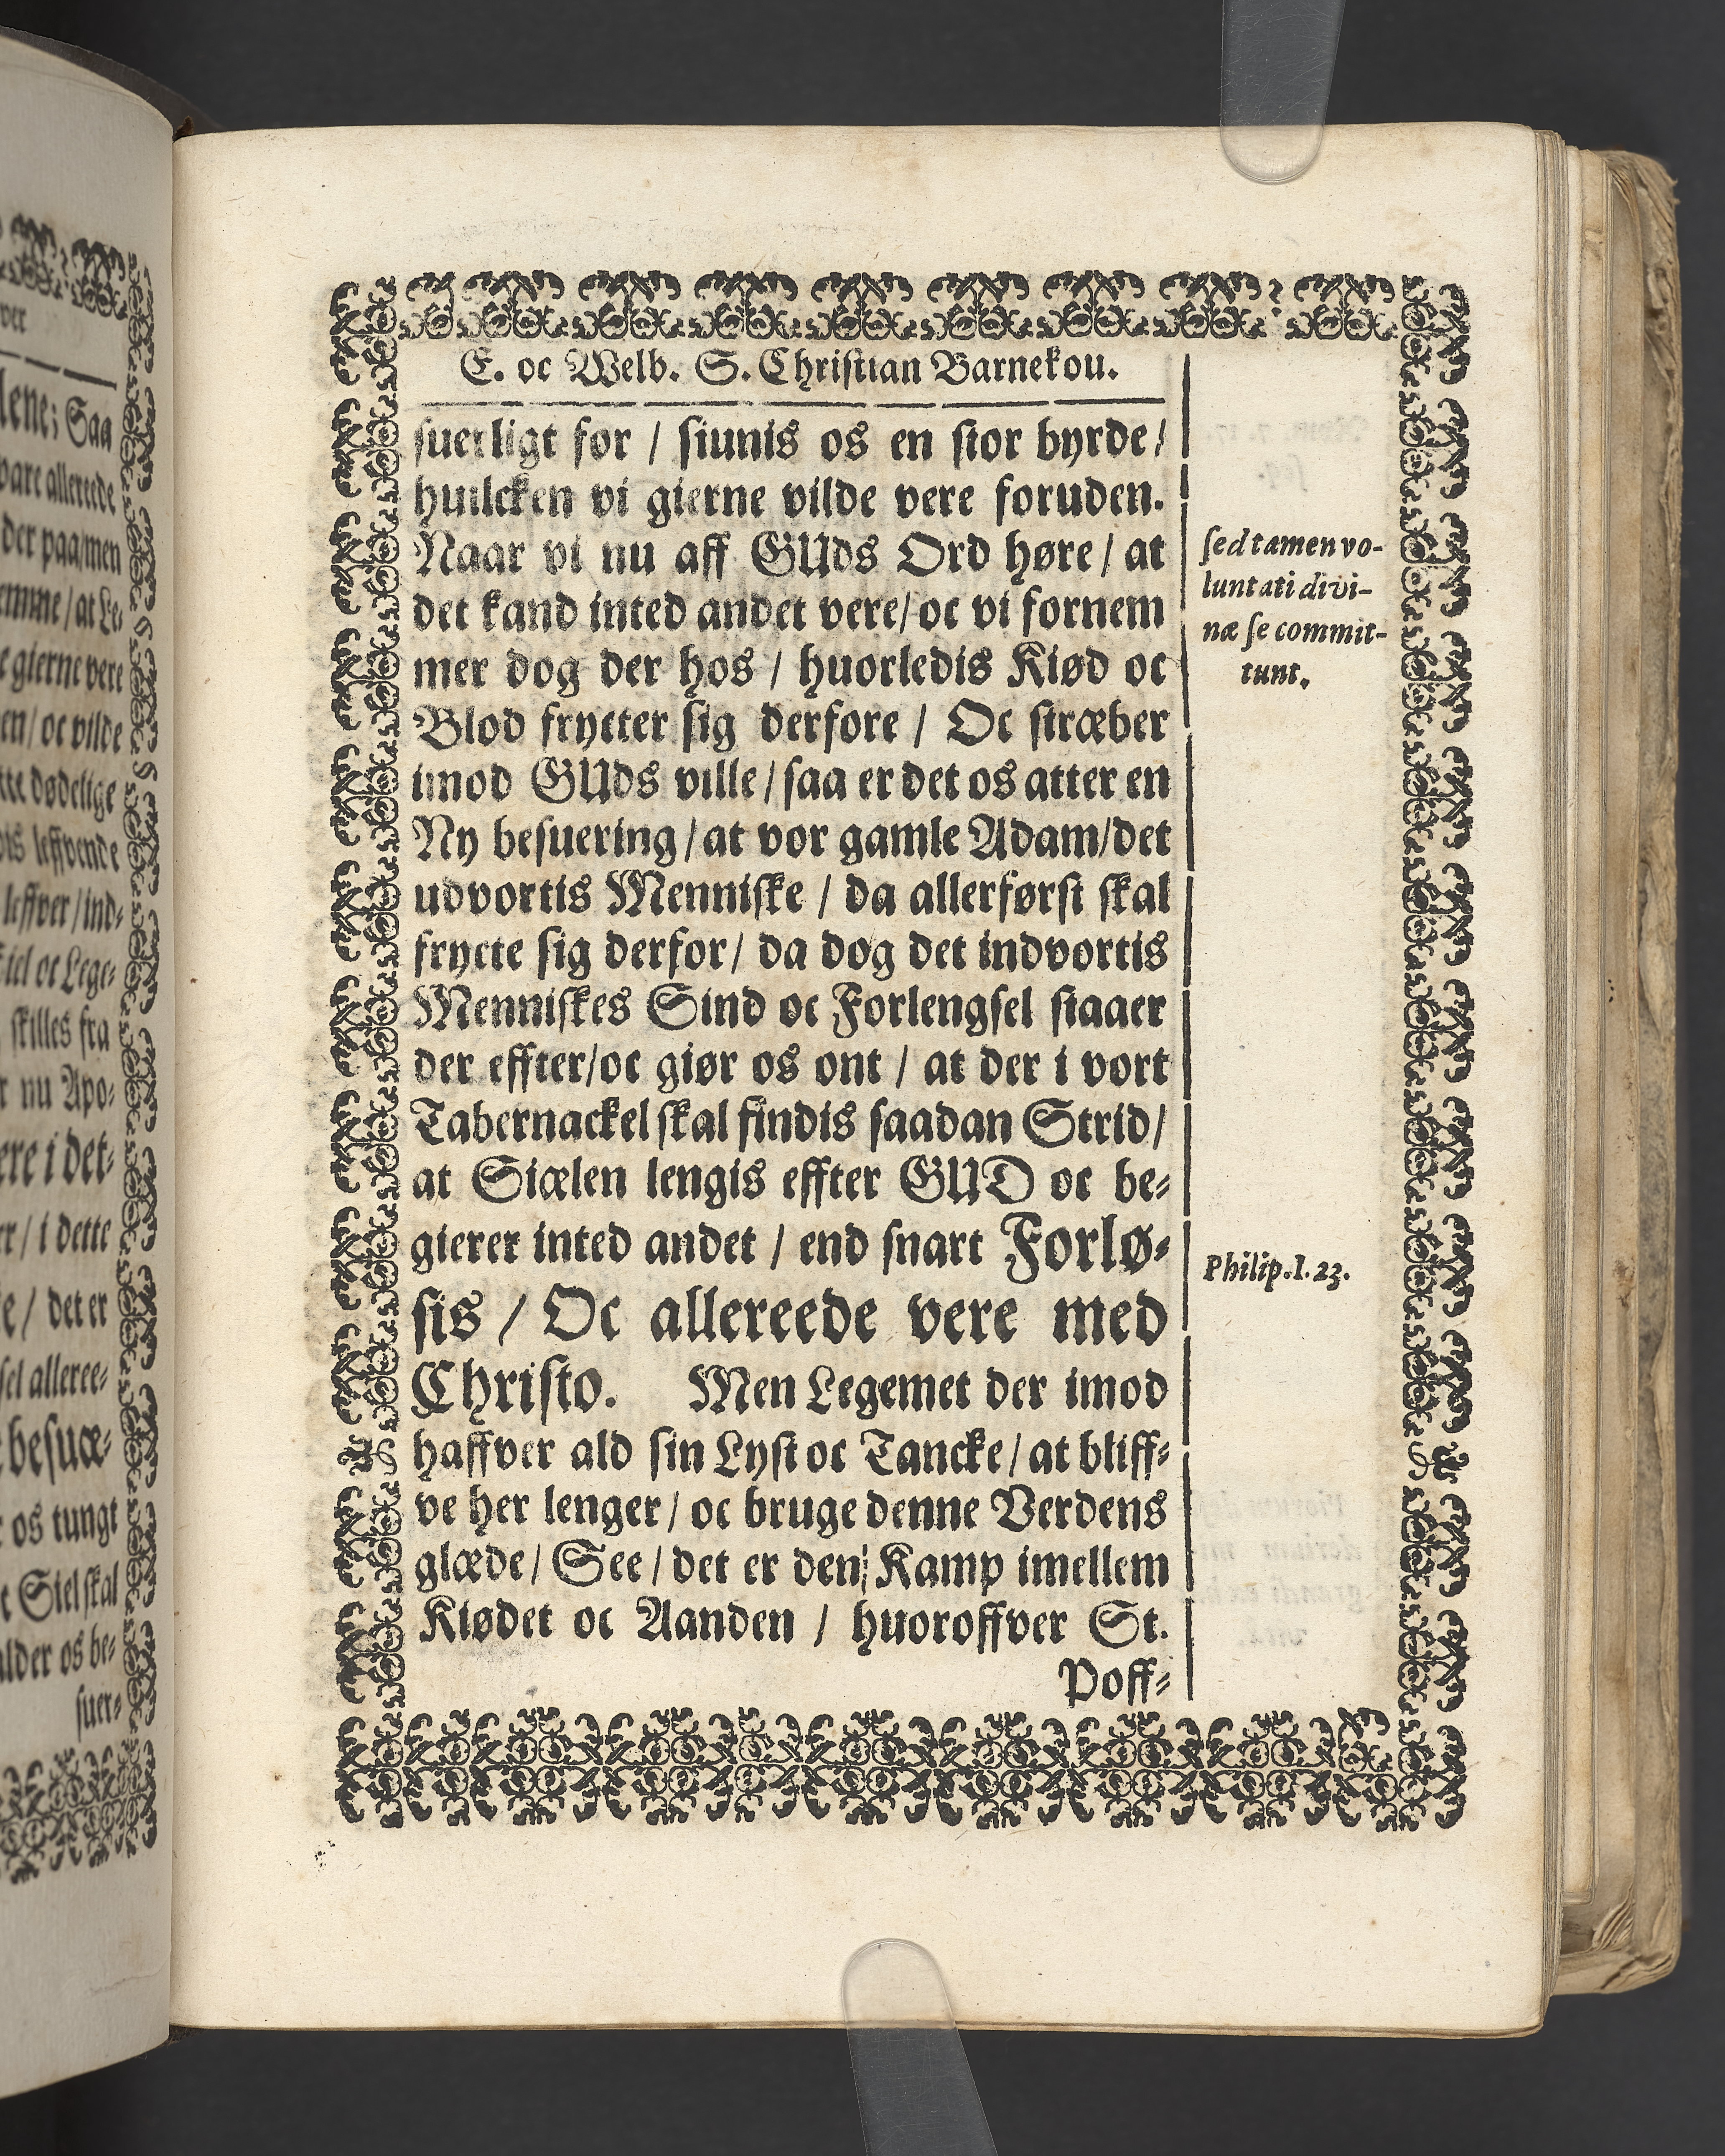 E. oc Welb. S. Christian Barnekou.
suerligt for / siunis os en stor byrde /
huilcken vi gierne vilde vere foruden.
Naar vi nu aff GUds Ord høre / at
det kand inted andet vere / oc vi fornem
mer dog der hos / huorledis Kiød oc
Blod frycter sig derfore / Oc stræber
imod GUds ville / saa er det os atter en
Ny besuering / at vor gamle Adam / det
udvortis Menniske / da allerførst skal
frycte sig derfor / da dog det indvortis
Menniskes Sind oc Forlengsel staaer
der effter / oc giør os ont / at der i vort
Tabernackel skal findis saadan Strid /
at Siælen lengis effter GUD oc be-
gierer inted andet / end snart Forlø-
sis / Oc allereede vere med
Christo. Men Legemet der imod
haffver ald sin Lyst oc Tancke / at bliff-
ve her lenger / oc bruge denne Verdens
glæde / See / det er den Kamp imellem
Kiødet oc Aanden / huoroffver St.
Poff-
sed tamen vo-
luntati divi-
næ se commit-
tunt.
Philip. 1. 23.
lene; Saa
vare allerede
der paa / men
emme / at Le-
gierne vere
en / oc vilde
dødelige
leffvende
leffver / ind-
oc Lege-
skilles fra
nu Apo-
ere i det-
/ i dette
/ det er
alleree-
besuæ-
os tungt
Siel skal
alder os be-
suer-